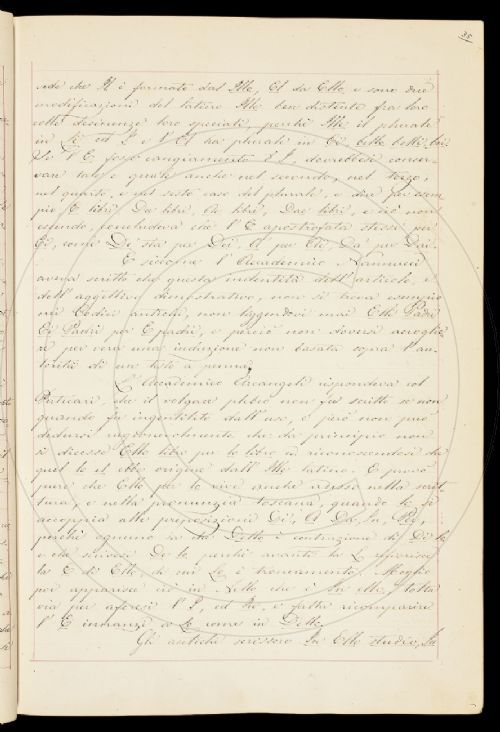 35
vede che Il è formato dal Ille, El da Ello, e sono due
modificazioni del latino Ille ben distinte fra loro
colle desinenze loro speciali, perchè Ille il plurale
in li ed I e l'El ha plurale in Ei, belle belli bei
Se l'E fosse cangiamento d'I, dovrebbesi conser-
vare tale e quale anche nel secondo, nel terzo,
nel quarto, e nel sesto caso del plurale, e dire per esem-
pio E libri, De libri, Ae libri, Dae libri, e ciò non
essendo, concludeva che l'E apostrofata stesse per
Ei, come De' sta per Dei, A' per Ai, Da' per Dai.
E siccome l'Accademico Nannucci
aveva scritto che questa indentità dell'articolo, e
dell'aggettivo dimostrativo, non si trova esempio
nei Codici antichi, non leggendovi mai Elli Padri
Ei Padri per E padri, e perciò non doversi accoglie
re per vera una induzione non basata sopra l'au-
torità di un testo a penna,
L'Accademico Arcangeli rispondeva col
Perticari, che il volgare plebeo non fu scritto se non
quando fu ingentilito dall'uso, e però non può
dedursi ragionevolmente che da principio non
si dicesse Ello libro per lo libro ed riconoscendosi da
quel lo el ebbe origine dall'Ille latino. E provò
pure che Ello per lo vive anche adesso nella scrit-
tura, e nella pronunzia toscana, quando lo si
accoppia alle preposizioni Di, A, Da, In, Per,
perchè ognuno sa che Dello è contrazione di Di lo
e che dicesi De lo perchè avanti la L riapparisce
la E di Ello, di cui Lo è troncamento. Meglio
poi apparisce ciò in Nello che è In ello, tolta
via per aferesi l'I, ed In, e fatta ricomparire
l'E innanzi a Lo come in Dello.
Gli antichi scrissero In Ello studio, In